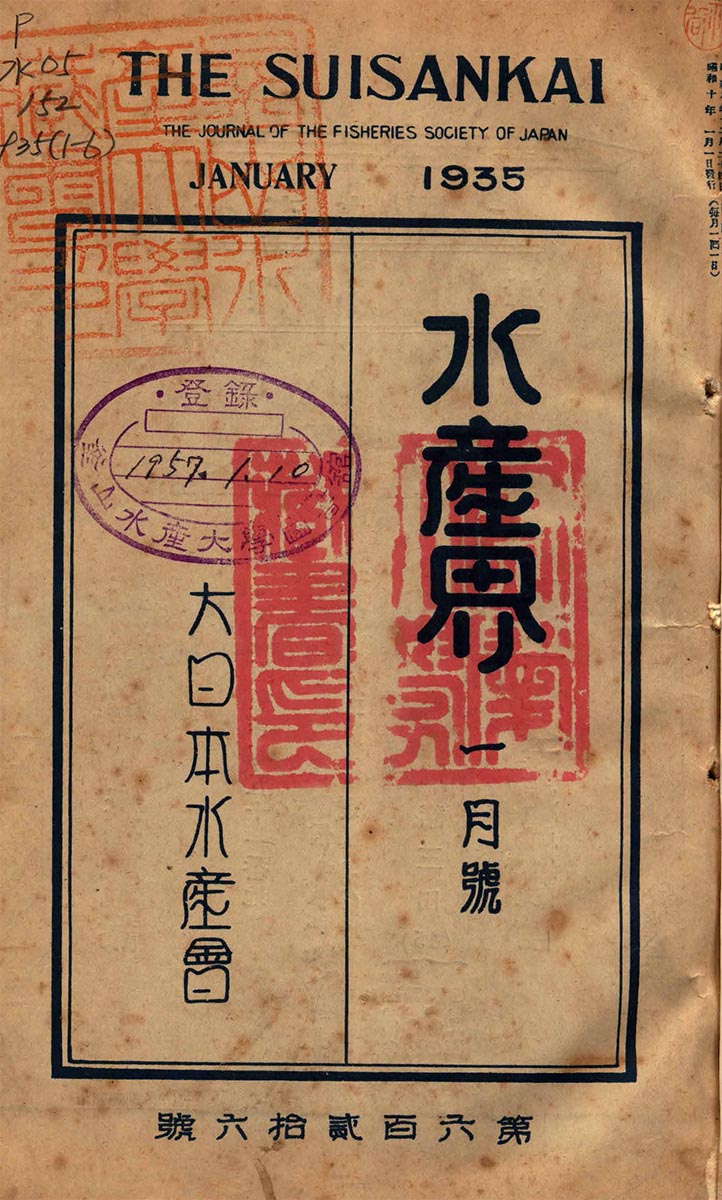 P
水05
152
935(1-6)
THE SUISANKAI
THE JOURNAL OF THE FISHERIES SOCIETY OF JAPAN
JANUARY 1935
昭和十年一月一日發行(每月一回一日)
水產界
一月號
登錄
1957. 1. 10
釜山水產大學圖書館
大日本水產會
第六百貳拾六號